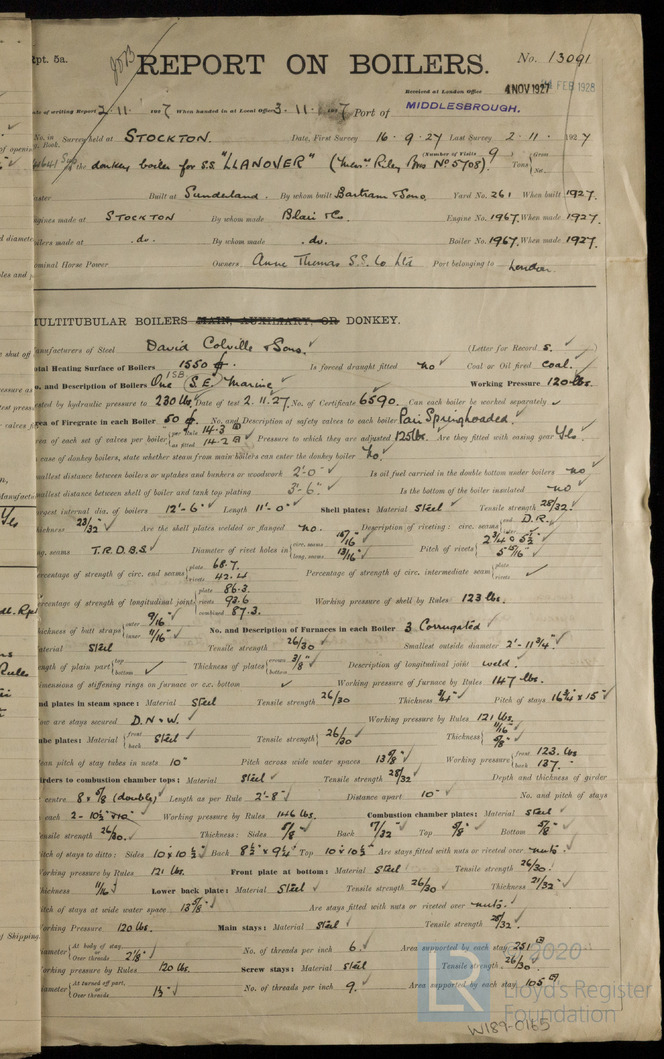 Rpt. 5a.
REPORT ON BOILERS.
No. 13091
Received at London Office 4 NOV 1927 FEB 1928
Date of writing Report 2.11. 1927 When handed in at Local Office 3.11. 1927 Port of MIDDLESBROUGH.
No. in Survey held at STOCKTON. Date, First Survey 16-9-27 Last Survey 2-11- 1927
g. Book. (Number of Visits 9)
on the donkey boiler for S.S. "LLANOVER" (Messrs Riley Bros No 5708). Tons { Gross Net
Master Built at Sunderland. By whom built Bartram & Sons. Yard No. 261 When built 1927.
Engines made at STOCKTON By whom made Blair & Co. Engine No. 1967. When made 1927.
Boilers made at .do. By whom made .do. Boiler No. 1967. When made 1927.
Nominal Horse Power Owners Anne Thomas S.S. Co Ltd Port belonging to London
MULTITUBULAR BOILERS MAIN, AUXILIARY, OR DONKEY.
Manufacturers of Steel David Colville & Sons. (Letter for Record S.)
Total Heating Surface of Boilers 1550 Is forced draught fitted no Coal or Oil fired coal.
No. and Description of Boilers One (S.E.) Marine 1SB Working Pressure 120 lbs.
Tested by hydraulic pressure to 230 lbs. Date of test 2.11.27. No. of Certificate 6590. Can each boiler be worked separately
Area of Firegrate in each Boiler 50 No. and Description of safety valves to each boiler Pair Springloaded.
Area of each set of valves per boiler { per Rule 14.3 as fitted 14.2 Pressure to which they are adjusted 125 lbs. Are they fitted with easing gear Yes
In case of donkey boilers, state whether steam from main boilers can enter the donkey boiler no.
Smallest distance between boilers or uptakes and bunkers or woodwork 2'-0" Is oil fuel carried in the double bottom under boilers no
Smallest distance between shell of boiler and tank top plating 3'-6" Is the bottom of the boiler insulated no
Largest internal dia. of boilers 12'-6" Length 11'-0" Shell plates: Material Steel Tensile strength 28/32.
Thickness 23/32 Are the shell plates welded or flanged no. Description of riveting: circ. seams { end D.R. inter.
long. seams T.R.D.B.S. Diameter of rivet holes in { circ. seams 15/16" long. seams 13/16" Pitch of rivets { 2 3/4 & 5 1/2 5 15/16"
Percentage of strength of circ. end seams { plate 68.7. rivets 42.4 Percentage of strength of circ. intermediate seam { plate rivets
Percentage of strength of longitudinal joint { plate 86.3. rivets 93.6 combined 87.3. Working pressure of shell by Rules 123 lbs.
Thickness of butt straps { outer 9/16" inner 11/16" No. and Description of Furnaces in each Boiler 3 Corrugated
Material Steel Tensile strength 26/30 Smallest outside diameter 2'-11 3/4"
Length of plain part { top bottom Thickness of plates { crown bottom 3/8" Description of longitudinal joint weld.
Dimensions of stiffening rings on furnace or c.c. bottom Working pressure of furnace by Rules 147 lbs.
End plates in steam space: Material Steel Tensile strength 26/30 Thickness 3/4" Pitch of stays 16 3/4" x 15"
How are stays secured D.N & W. Working pressure by Rules 121 lbs.
Tube plates: Material { front back Steel Tensile strength { 26/30 Thickness { 11/16" 5/8"
Mean pitch of stay tubes in nests 10" Pitch across wide water spaces 13 5/8" Working pressure { front 123. lbs back 137.
Girders to combustion chamber tops: Material Steel Tensile strength 28/32 Depth and thickness of girder
at centre 8 x 5/8 (double) Length as per Rule 2'-8" Distance apart 10" No. and pitch of stays
in each 2 - 10 1/2" x 10" Working pressure by Rules 126 lbs. Combustion chamber plates: Material Steel
Tensile strength 26/30. Thickness: Sides 5/8" Back 17/32" Top 5/8" Bottom 5/8"
Pitch of stays to ditto: Sides 10 x 10 1/2" Back 8 1/2" x 9 1/4" Top 10 x 10 1/2" Are stays fitted with nuts or riveted over nuts.
Working pressure by Rules 121 lbs. Front plate at bottom: Material Steel Tensile strength 26/30.
Thickness 11/16" Lower back plate: Material Steel Tensile strength 26/30 Thickness 21/32"
Pitch of stays at wide water space 13 5/8" Are stays fitted with nuts or riveted over nuts.
Working Pressure 120 lbs. Main stays: Material Steel Tensile strength 28/32.
Diameter { At body of stay, or Over threads 2 1/8" No. of threads per inch 6. Area supported by each stay 251
Working pressure by Rules 120 lbs. Screw stays: Material Steel Tensile strength 26/30
Diameter { At turned off part, or Over threads 1 1/2" No. of threads per inch 9. Area supported by each stay 105
© 2020
LR
Lloyd's Register
Foundation
W189-0165